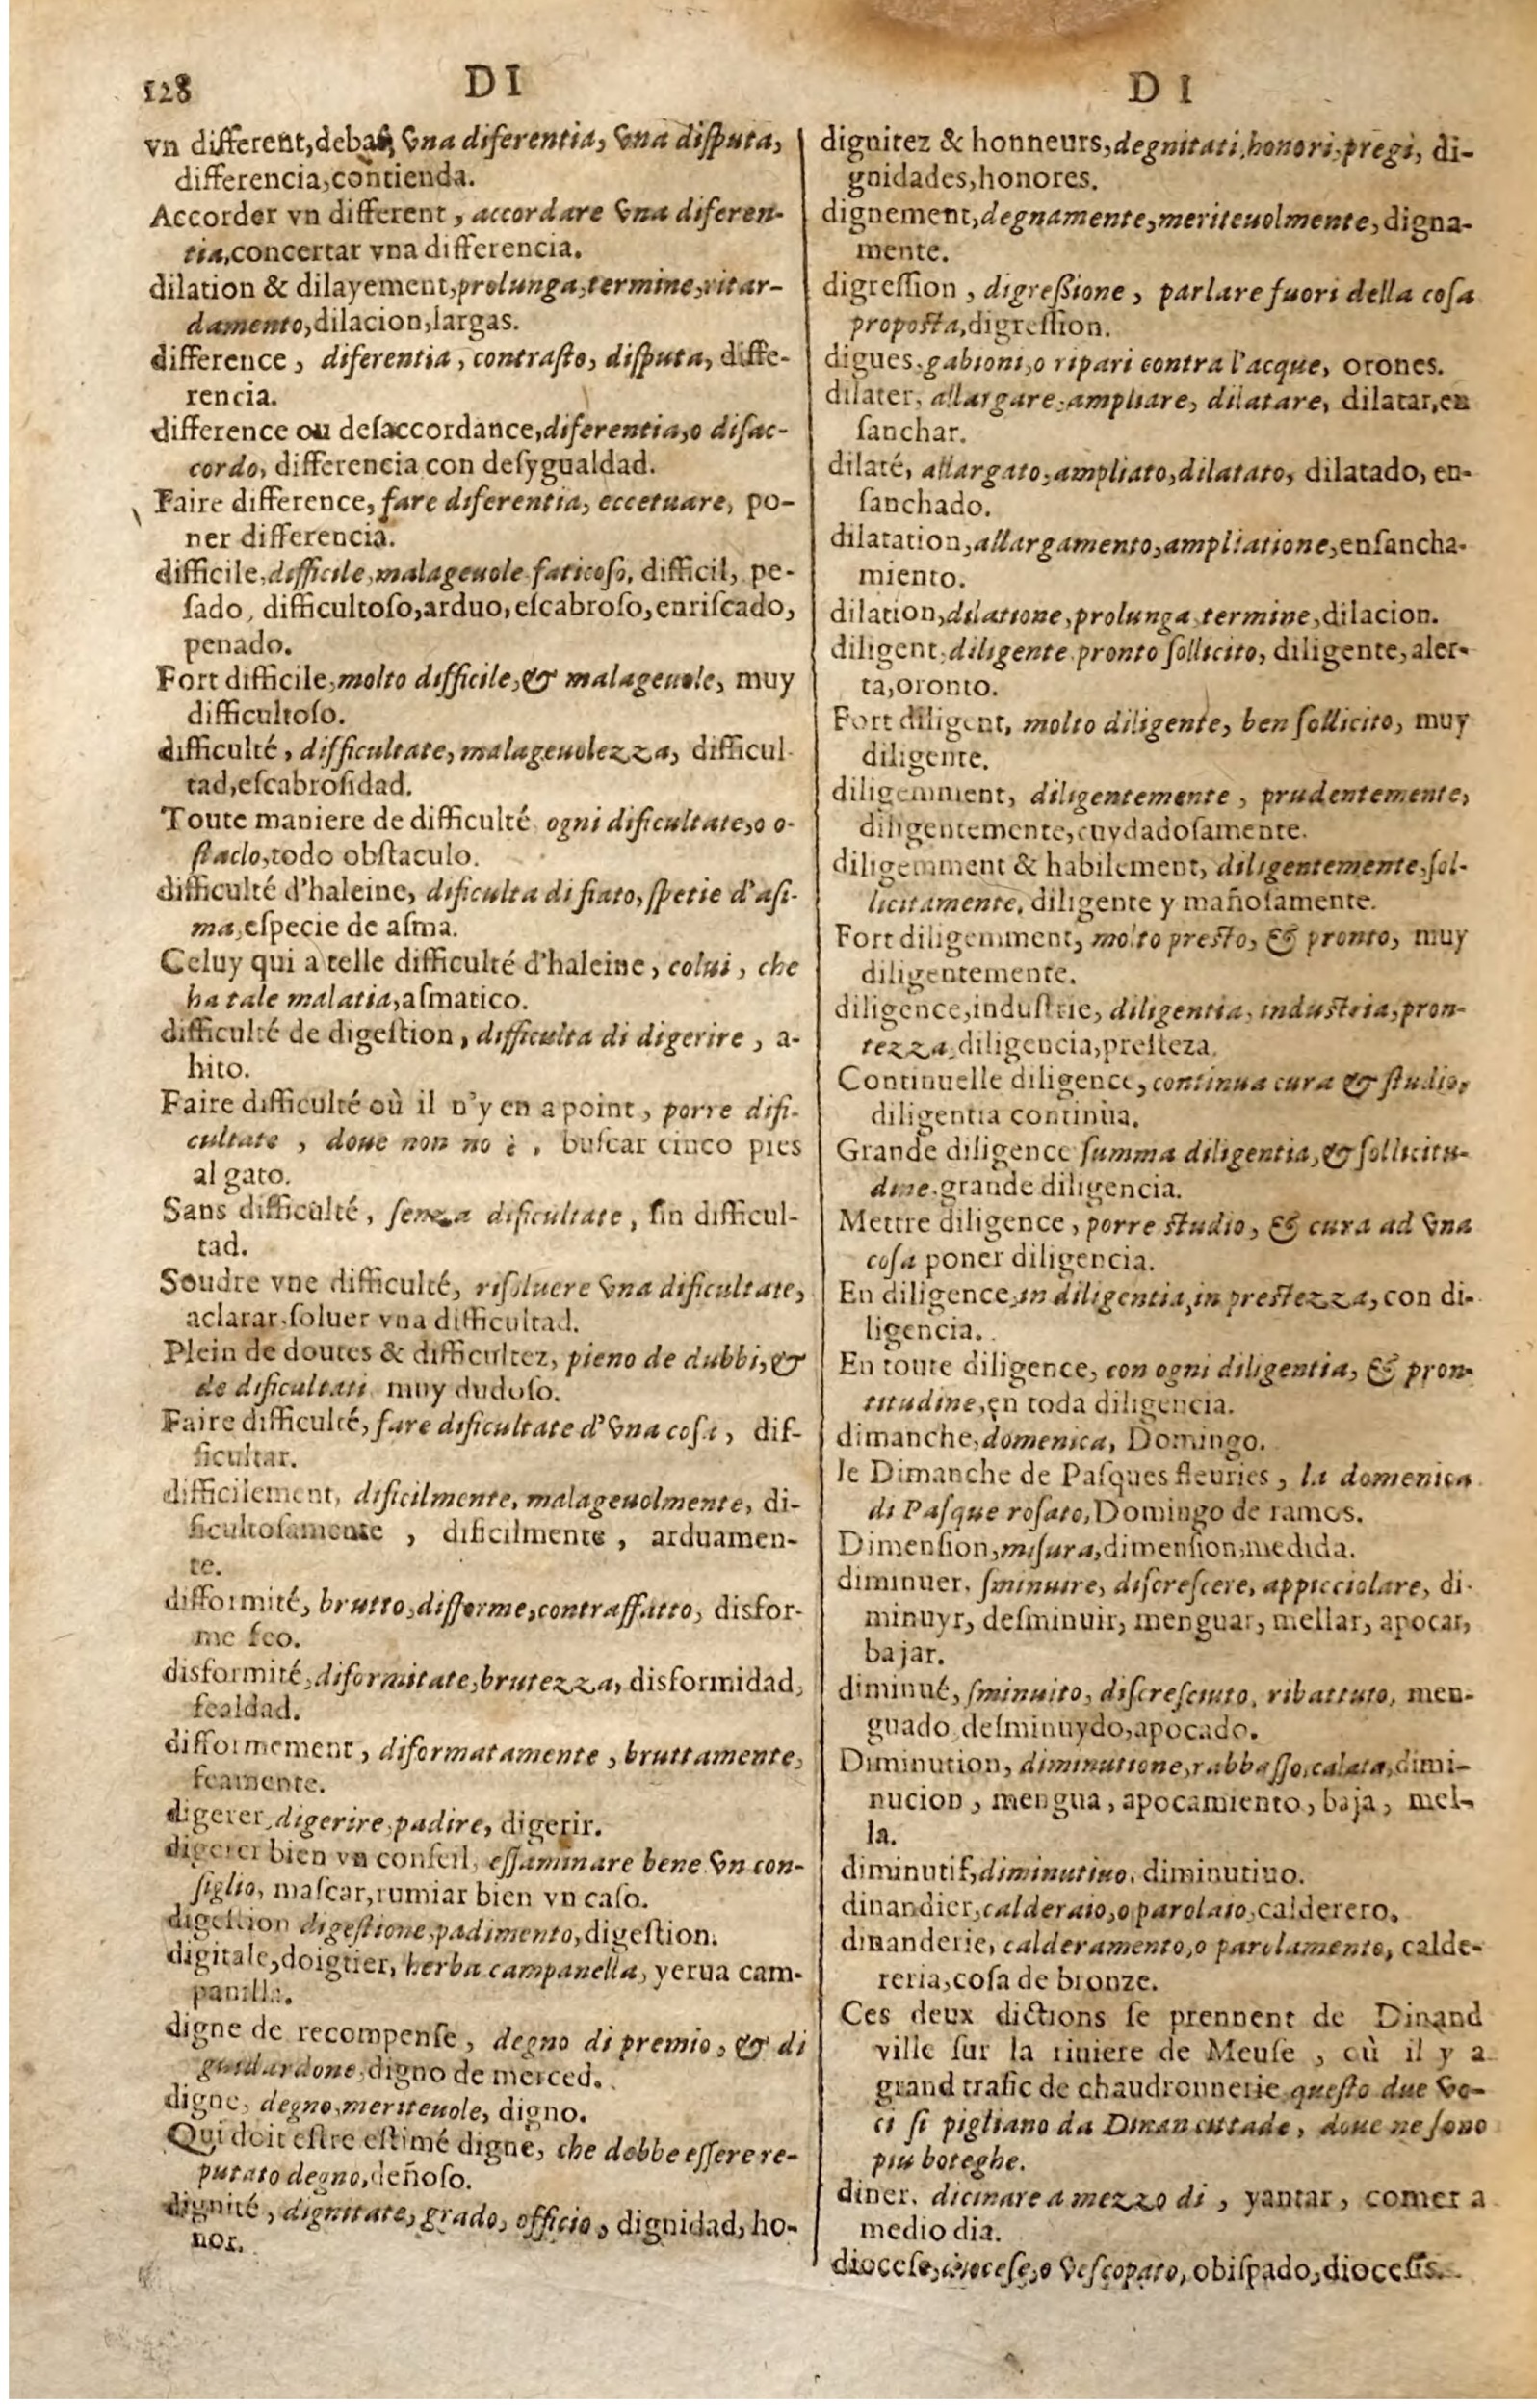 128 DI DI
vn different,debat, vna diferentia, vna disputa,
differencia,contienda.
Accorder vn different, accordare vna diferen-
tia,concertar vna differencia.
dilation & dilayement,prolunga,termine,ritar-
damento,dilacion,largas.
difference, diferentia, contrasto, disputa, diffe-
rencia.
difference ou deſaccordance,diferentia,o diſac-
cordo, differencia con deſygualdad.
Faire difference, fare diferentia, eccetuare, po-
ner differencia.
difficile,difficile,malageuole faticoſo, difficil, pe-
ſado, difficultoſo,arduo,eſcabroſo,enriſcado,
penado.
Fort difficile,molto difficile,& malageuole, muy
difficultoſo.
difficulté, difficultate, malageuolezza, difficul-
tad,eſcabroſidad.
Toute maniere de difficulté ogni dificultate,o o-
ſtaclo,todo obſtaculo.
difficulté d'haleine, dificulta di fiato, ſpetie d'aſi-
ma,eſpecie de aſma.
Celuy qui a telle difficulté d'haleine, colui, che
ha tale malatia,aſmatico.
difficulté de digeſtion, difficulta di digerire, a-
hito.
Faire difficulté où il n'y en a point, porre difi-
cultate, doue non no è, buſcar cinco pies
al gato.
Sans difficulté, ſenza dificultate, ſin difficul-
tad.
Soudre vne difficulté, riſoluere vna dificultate,
aclarar,ſoluer vna difficultad.
Plein de doutes & difficultez, pieno de dubbi,&
de dificultati muy dudoſo.
Faire difficulté, fare dificultate d'vna coſa, diſ-
ficultar.
difficilement, dificilmente, malageuolmente, di-
ficultoſamente, dificilmente, arduamen-
te.
difformité, brutto,difforme,contraffatto, disfor-
me feo.
disformité,diformitate,brutezza, disformidad,
fealdad.
difformement, diformatamente, bruttamente,
feamente.
digerer,digerire,padire, digerir.
digerer bien vn conſeil, eſſaminare bene vn con-
ſiglio, maſcar,rumiar bien vn caſo.
digeſtion digeſtione,padimento,digeſtion.
digitale,doigtier, herba campanella, yerua cam-
panilla.
digne de recompenſe, degno di premio, & di
guidardone,digno de merced.
digne, degno,meriteuole, digno.
Qui doit eſtre eſtimé digne, che debbe eſſere re-
putato degno,deñoſo.
dignité, dignitate, grado, officio, dignidad, ho-
nor.
dignitez & honneurs,degnitati,honori,pregi, di-
gnidades,honores.
dignement,degnamente,meriteuolmente, digna-
mente.
digreſſion, digreßione, parlare fuori della coſa
propoſta,digreſſion.
digues,gabioni,o ripari contra l'acque, orones.
dilater, allargare,ampliare, dilatare, dilatar,en
ſanchar.
dilaté, allargato,ampliato,dilatato, dilatado, en-
ſanchado.
dilatation,allargamento,ampliatione,enſancha-
miento.
dilation,dilatione,prolunga termine,dilacion.
diligent,diligente pronto ſollicito, diligente, aler-
ta,oronto.
Fort diligent, molto diligente, ben ſollicito, muy
diligente.
diligemment, diligentemente, prudentemente,
diligentemente,cuydadoſamente.
diligemment & habilement, diligentemente,ſol-
licitamente, diligente y mañoſamente.
Fort diligemment, molto preſto, & pronto, muy
diligentemente.
diligence,induſtrie, diligentia, induſtria,pron-
tezza,diligencia,preſteza.
Continuelle diligence, continua cura & ſtudio,
diligentia continùa.
Grande diligence ſumma diligentia,& ſollicitu-
dine,grande diligencia.
Mettre diligence, porre ſtudio, & cura ad vna
coſa poner diligencia.
En diligence,in diligentia,in preſtezza, con di-
ligencia.
En toute diligence, con ogni diligentia, & pron-
titudine,en toda diligencia.
dimanche,domenica, Domingo.
le Dimanche de Paſques fleuries, la domenica
di Paſque roſato,Domingo de ramos.
Dimenſion,miſura,dimenſion,medida.
diminuer, ſminuire, diſcreſcere, appicciolare, di-
minuyr, deſminuir, menguar, mellar, apocar,
bajar.
diminué, ſminuito, diſcreſciuto, ribattuto, men-
guado deſminuydo,apocado.
Diminution, diminutione,rabbaſſo,calata,dimi-
nucion, mengua, apocamiento, baja, mel-
la.
diminutif,diminutiuo, diminutiuo.
dinandier,calderaio,o parolaio,calderero.
dinanderie, calderamento,o parolamento, calde-
reria,coſa de bronze.
Ces deux dictions ſe prennent de Dinand
ville ſur la riuiere de Meuſe, où il y a
grand trafic de chaudronnerie queſto due vo-
ci ſi pigliano da Dinan cittade, doue ne ſono
piu boteghe.
diner, dicinare a mezzo di, yantar, comer a
medio dia.
dioceſe,dioceſe,o veſcopato, obiſpado,dioceſis.